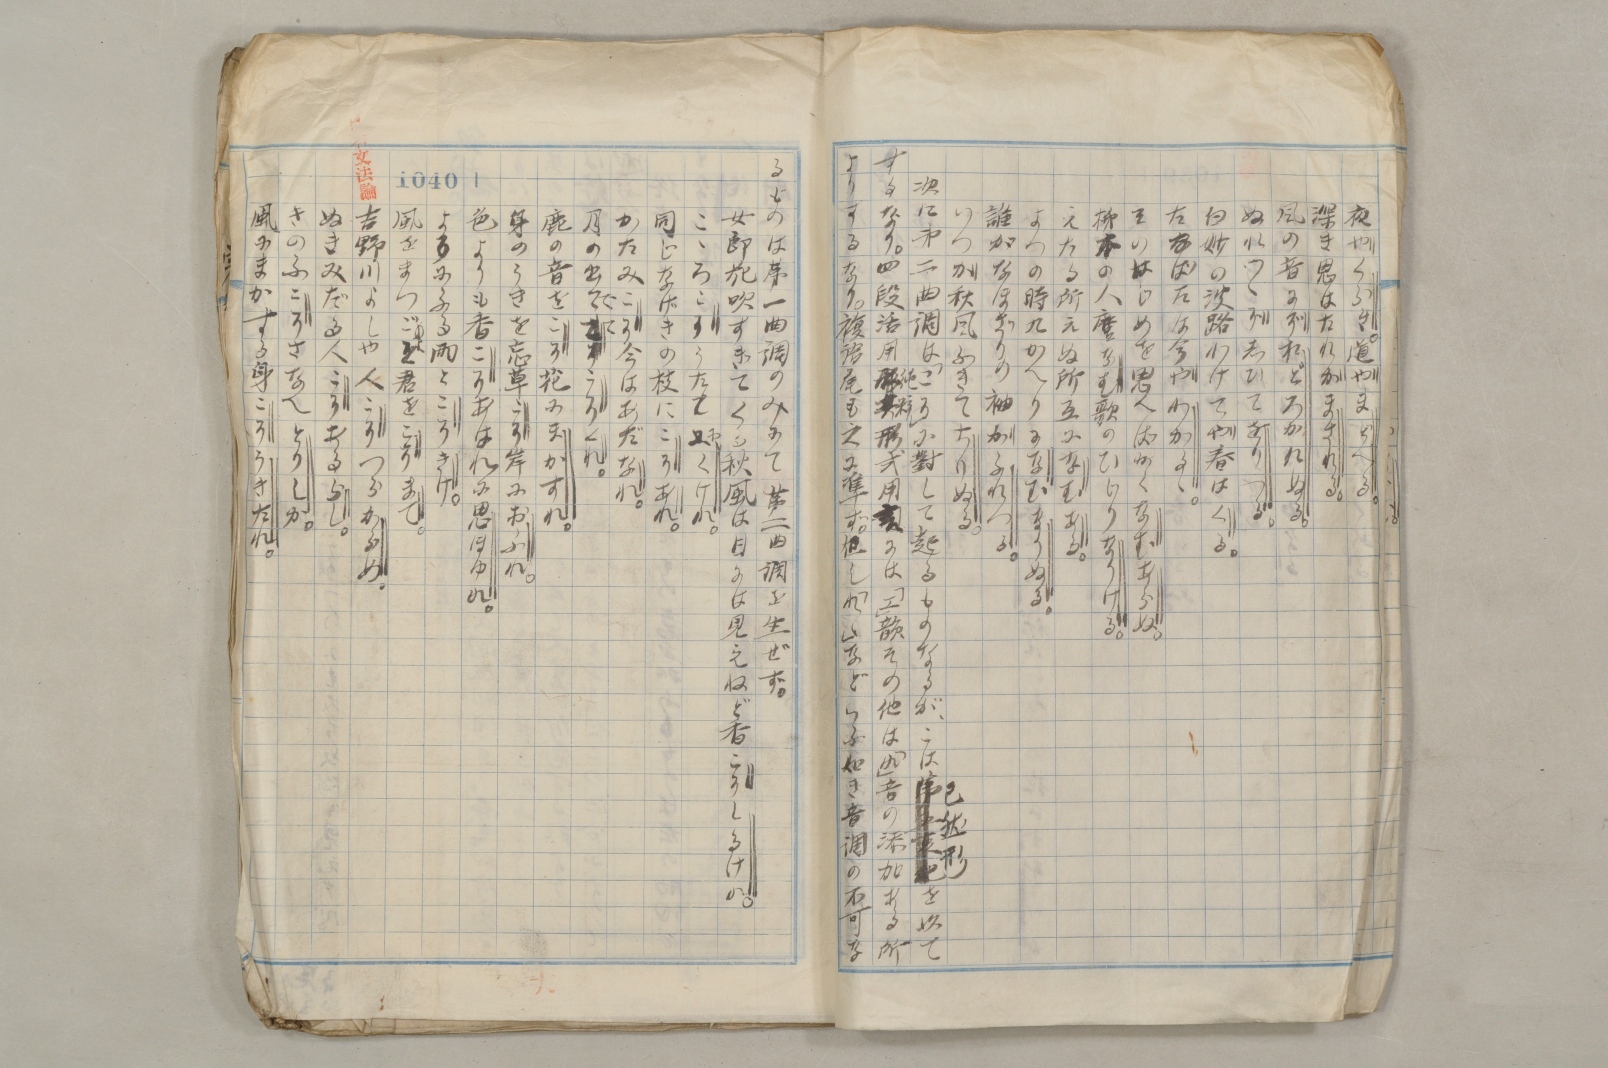 夜やくらき。道やまどへる。
深き思はたれかまされる。
風の音にぞおどろかれぬる。
ぬれつゝぞしひてをりつる。
白妙の波路わけてや春はくる。
左右は今やわかるゝ。
そのはじめを思へばかくなむあらぬ。
柿本の人麿なむ歌のひじりなりける。
えたる所えぬ所互になむある。
よつの時九かへりになむなりぬる。
誰がなほざりの袖かふれつる。
いつか秋風ふきてちりぬる。
次に第二曲調は「こそ」に對して起るものなるが、こは已然形を以て
するなり。四段活用純粹形式用言には「エ」韻その他は「れ」音の添加ある所
よりするなり。複語尾も之に準ず。但し「じ」などいふ如き音調の不可な
るものは第一曲調のみにて第二曲調を生ぜず。
女郎花吹すぎてくる秋風は目には見えねど香こそしるけれ。
こゝろこそうたてにくけれ。
同じなげきの枝にこそあれ。
かたみこそ今はあだなれ。
月の出でてこそくれ。
鹿の音をこそ花にまかすれ。
身のうきを忘草こそ岸におふれ。
色よりも香こそあはれに思ほゆれ。
よるにふる雨とこそきけ。
風をまつごと君をこそまて。
吉野川よしや人こそつらからめ。
ぬきみだる人こそあるらし。
きのふこそさなへとりしか。
風にまかする身こそうきたれ。
文法論
1040